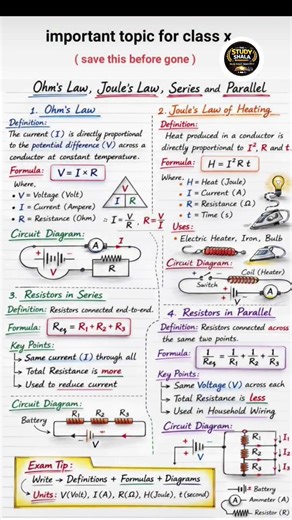 important topic for class x
( save this before gone )
STUDY
SHALA
Ohm's Law, Joule's Law, Series and Parallel
1. Ohm's Law
Definition:
The current (I) is directly proportional
to the potential difference (V) across a
conductor at constant temperature.
Formula: V = I × R
Where,
• V = Voltage (Volt)
• I = Current (Ampere)
• R = Resistance (Ohm)
V
I R
∴ I = V/R R = V/I
Circuit Diagram:
A
I
+
−
V
R
2. Joule's Law of Heating
Definition:
Heat produced in a conductor is
directly proportional to I², R and t.
Formula: H = I² R t
Where,
• H = Heat (Joule)
• I = Current (A)
• R = Resistance (Ω)
• t = Time (s)
Uses:
Electric Heater, Iron, Bulb
Circuit Diagram:
Coil (Heater)
Switch
A
V
3. Resistors in Series
Definition: Resistors connected end-to-end.
Formula: Req = R₁ + R₂ + R₃
Key Points:
Same current (I) through all
Total Resistance is more
Used to reduce current
Circuit Diagram:
Battery
R₁ R₂ R₃
V
4. Resistors in Parallel
Definition: Resistors connected across
the same two points.
Formula: 1/Req = 1/R₁ + 1/R₂ + 1/R₃
Key Points:
Same Voltage (V) across each
Total Resistance is less
Used in Household Wiring
Circuit Diagram:
V
R₁
R₂
R₃
I₁
I₂
I₃
Exam Tip:
Write → Definitions + Formulas + Diagrams
Units: V(Volt), I(A), R(Ω), H(Joule), t(second)
Battery
Ammeter (A)
Resistor (R)